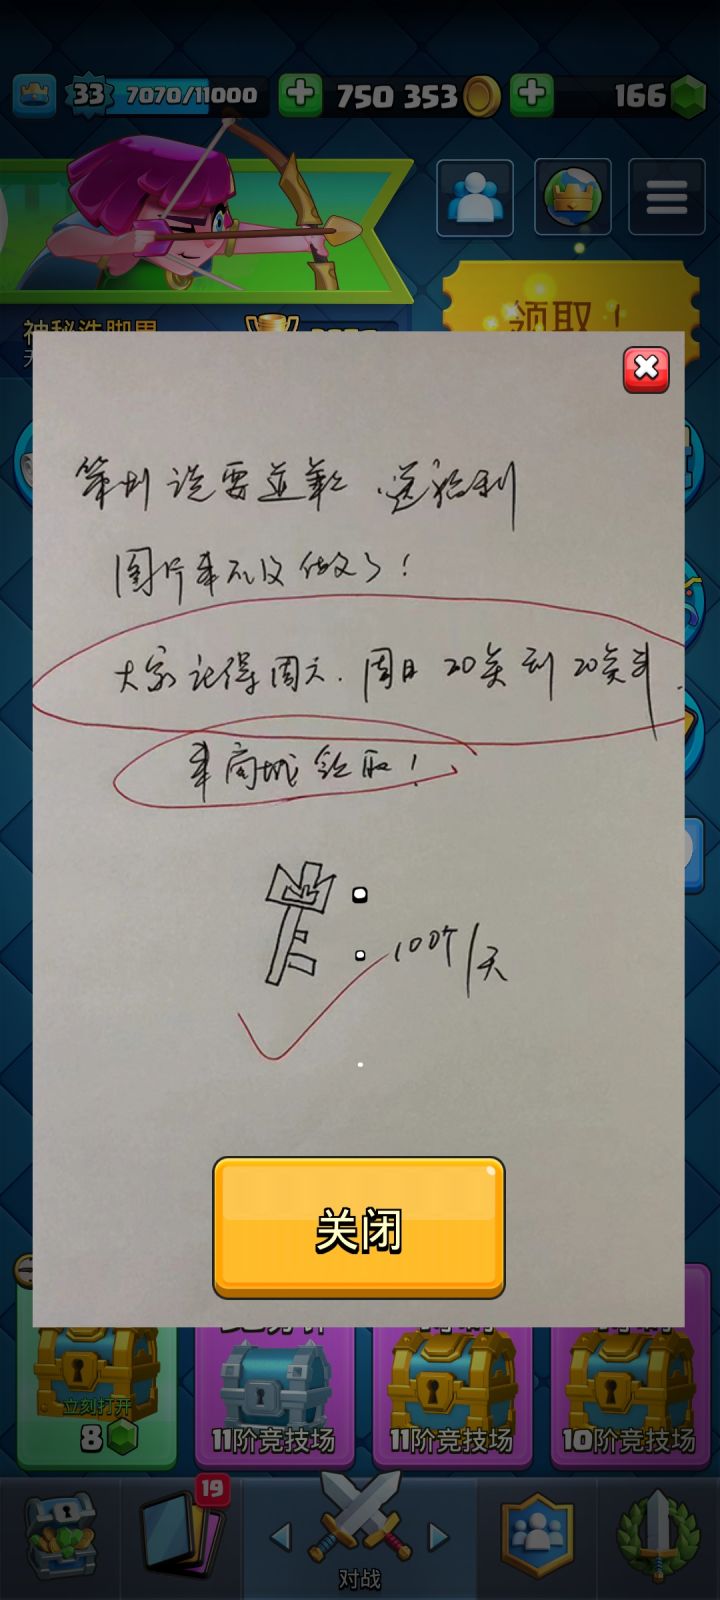 33 7070/11000 750 353 166
领取！
策划说要道歉，送福利
图片来不及做了！
大家记得周六、周日 20点到20点半
来商城领取！
100个/天
关闭
立刻打开
8
11阶竞技场
11阶竞技场
10阶竞技场
19
对战